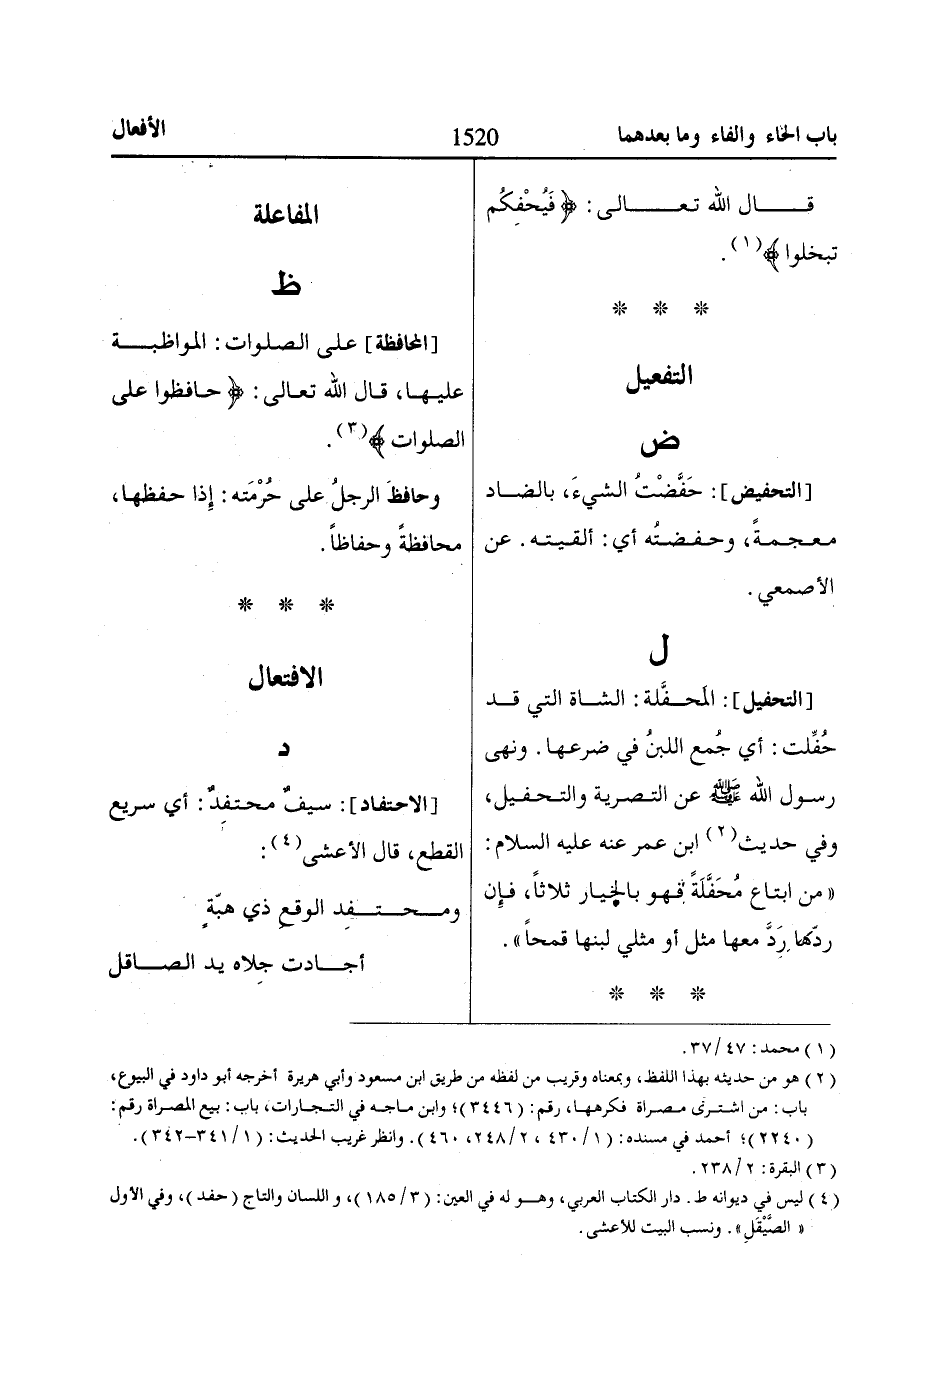 باب الحاء والفاء وما بعدهما
1520
الأفعال
قال الله تعالى: ﴿ فَيُحْفِكُم
تبخلوا ﴾(١).
* * *
التفعيل
ض
[التحفيض]: حَفَّضْتُ الشيءَ، بالضاد
معجمةً، وحفضتُه أي: ألقيته. عن
الأصمعي.
ل
[التحفيل]: المَحفَّلة: الشاة التي قد
حُفِّلت: أي جُمع اللبنُ في ضرعها. ونهى
رسول الله ﷺ عن التصرية والتحفيل،
وفي حديث(٢) ابن عمر عنه عليه السلام:
«من ابتاع مُحَفَّلَةً فهو بالخيار ثلاثاً، فإِن
ردّها رَدَّ معها مثل أو مثلي لبنها قمحاً».
* * *
المفاعلة
ظ
[المحافظة] على الصلوات: المواظبة
عليها، قال الله تعالى: ﴿ حافظوا على
الصلوات ﴾(٣).
وحافظَ الرجلُ على حُرْمَته: إِذا حفظها،
محافظةً وحفاظاً.
* * *
الافتعال
د
[الاحتفاد]: سيفٌ محتفِدٌ: أي سريع
القطع، قال الأعشى(٤):
ومحتفِد الوقعِ ذي هبّةٍ
أجادت جِلاه يد الصاقل
(١) محمد: ٤٧/ ٣٧.
(٢) هو من حديثه بهذا اللفظ، وبمعناه وقريب من لفظه من طريق ابن مسعود وأبي هريرة أخرجه أبو داود في البيوع،
باب: من اشترى مصراة فكرهها، رقم: (٣٤٤٦)؛ وابن ماجه في التجارات، باب: بيع المصراة رقم:
(٢٢٤٠)؛ أحمد في مسنده: (١/ ٤٣٠، ٢/ ٢٤٨، ٤٦٠). وانظر غريب الحديث: (١/ ٣٤١–٣٤٢).
(٣) البقرة: ٢/ ٢٣٨.
(٤) ليس في ديوانه ط. دار الكتاب العربي، وهو له في العين: (٣/ ١٨٥)، و اللسان والتاج (حفد)، وفي الأول
« الصَّيْقَلِ». ونسب البيت للأعشى.